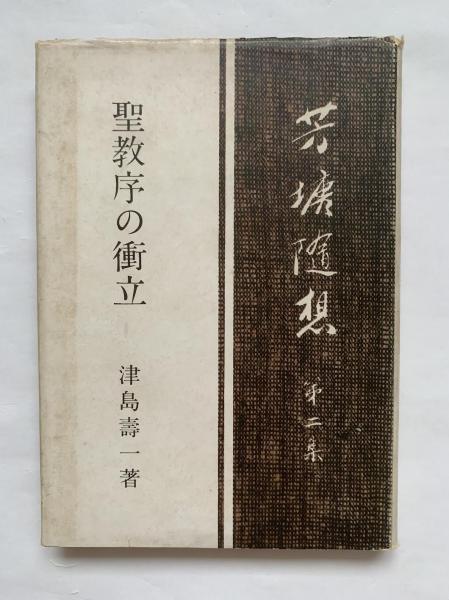 芳塘隨想
第二集
聖教序の衝立
津島壽一著